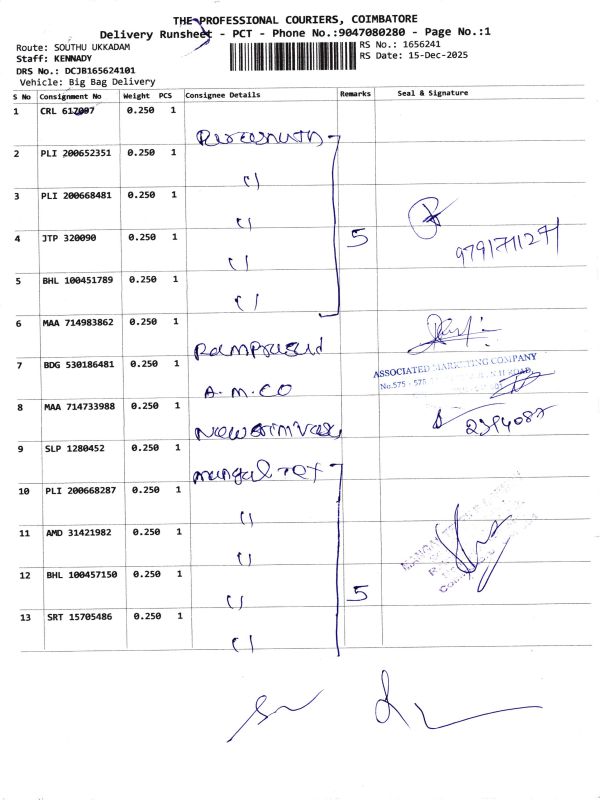 THE PROFESSIONAL COURIERS, COIMBATORE
Delivery Runsheet - PCT - Phone No.:9047080280 - Page No.:1
Route: SOUTHU UKKADAM
RS No.: 1656241
Staff: KENNADY
RS Date: 15-Dec-2025
DRS No.: DCJB165624101
Vehicle: Big Bag Delivery
S No Consignment No Weight PCS Consignee Details Remarks Seal & Signature
1 CRL 617097 0.250 1
2 PLI 200652351 0.250 1 "
3 PLI 200668481 0.250 1 "
4 JTP 320090 0.250 1 " 5 9791771127
5 BHL 100451789 0.250 1 "
6 MAA 714983862 0.250 1 Ramprasad
ASSOCIATED MARKETING COMPANY
No.575 - 576
7 BDG 530186481 0.250 1 A.M.CO
8 MAA 714733988 0.250 1 New
9 SLP 1280452 0.250 1 mangal tex
10 PLI 200668287 0.250 1 "
11 AMD 31421982 0.250 1 "
12 BHL 100457150 0.250 1 " 5
13 SRT 15705486 0.250 1 "